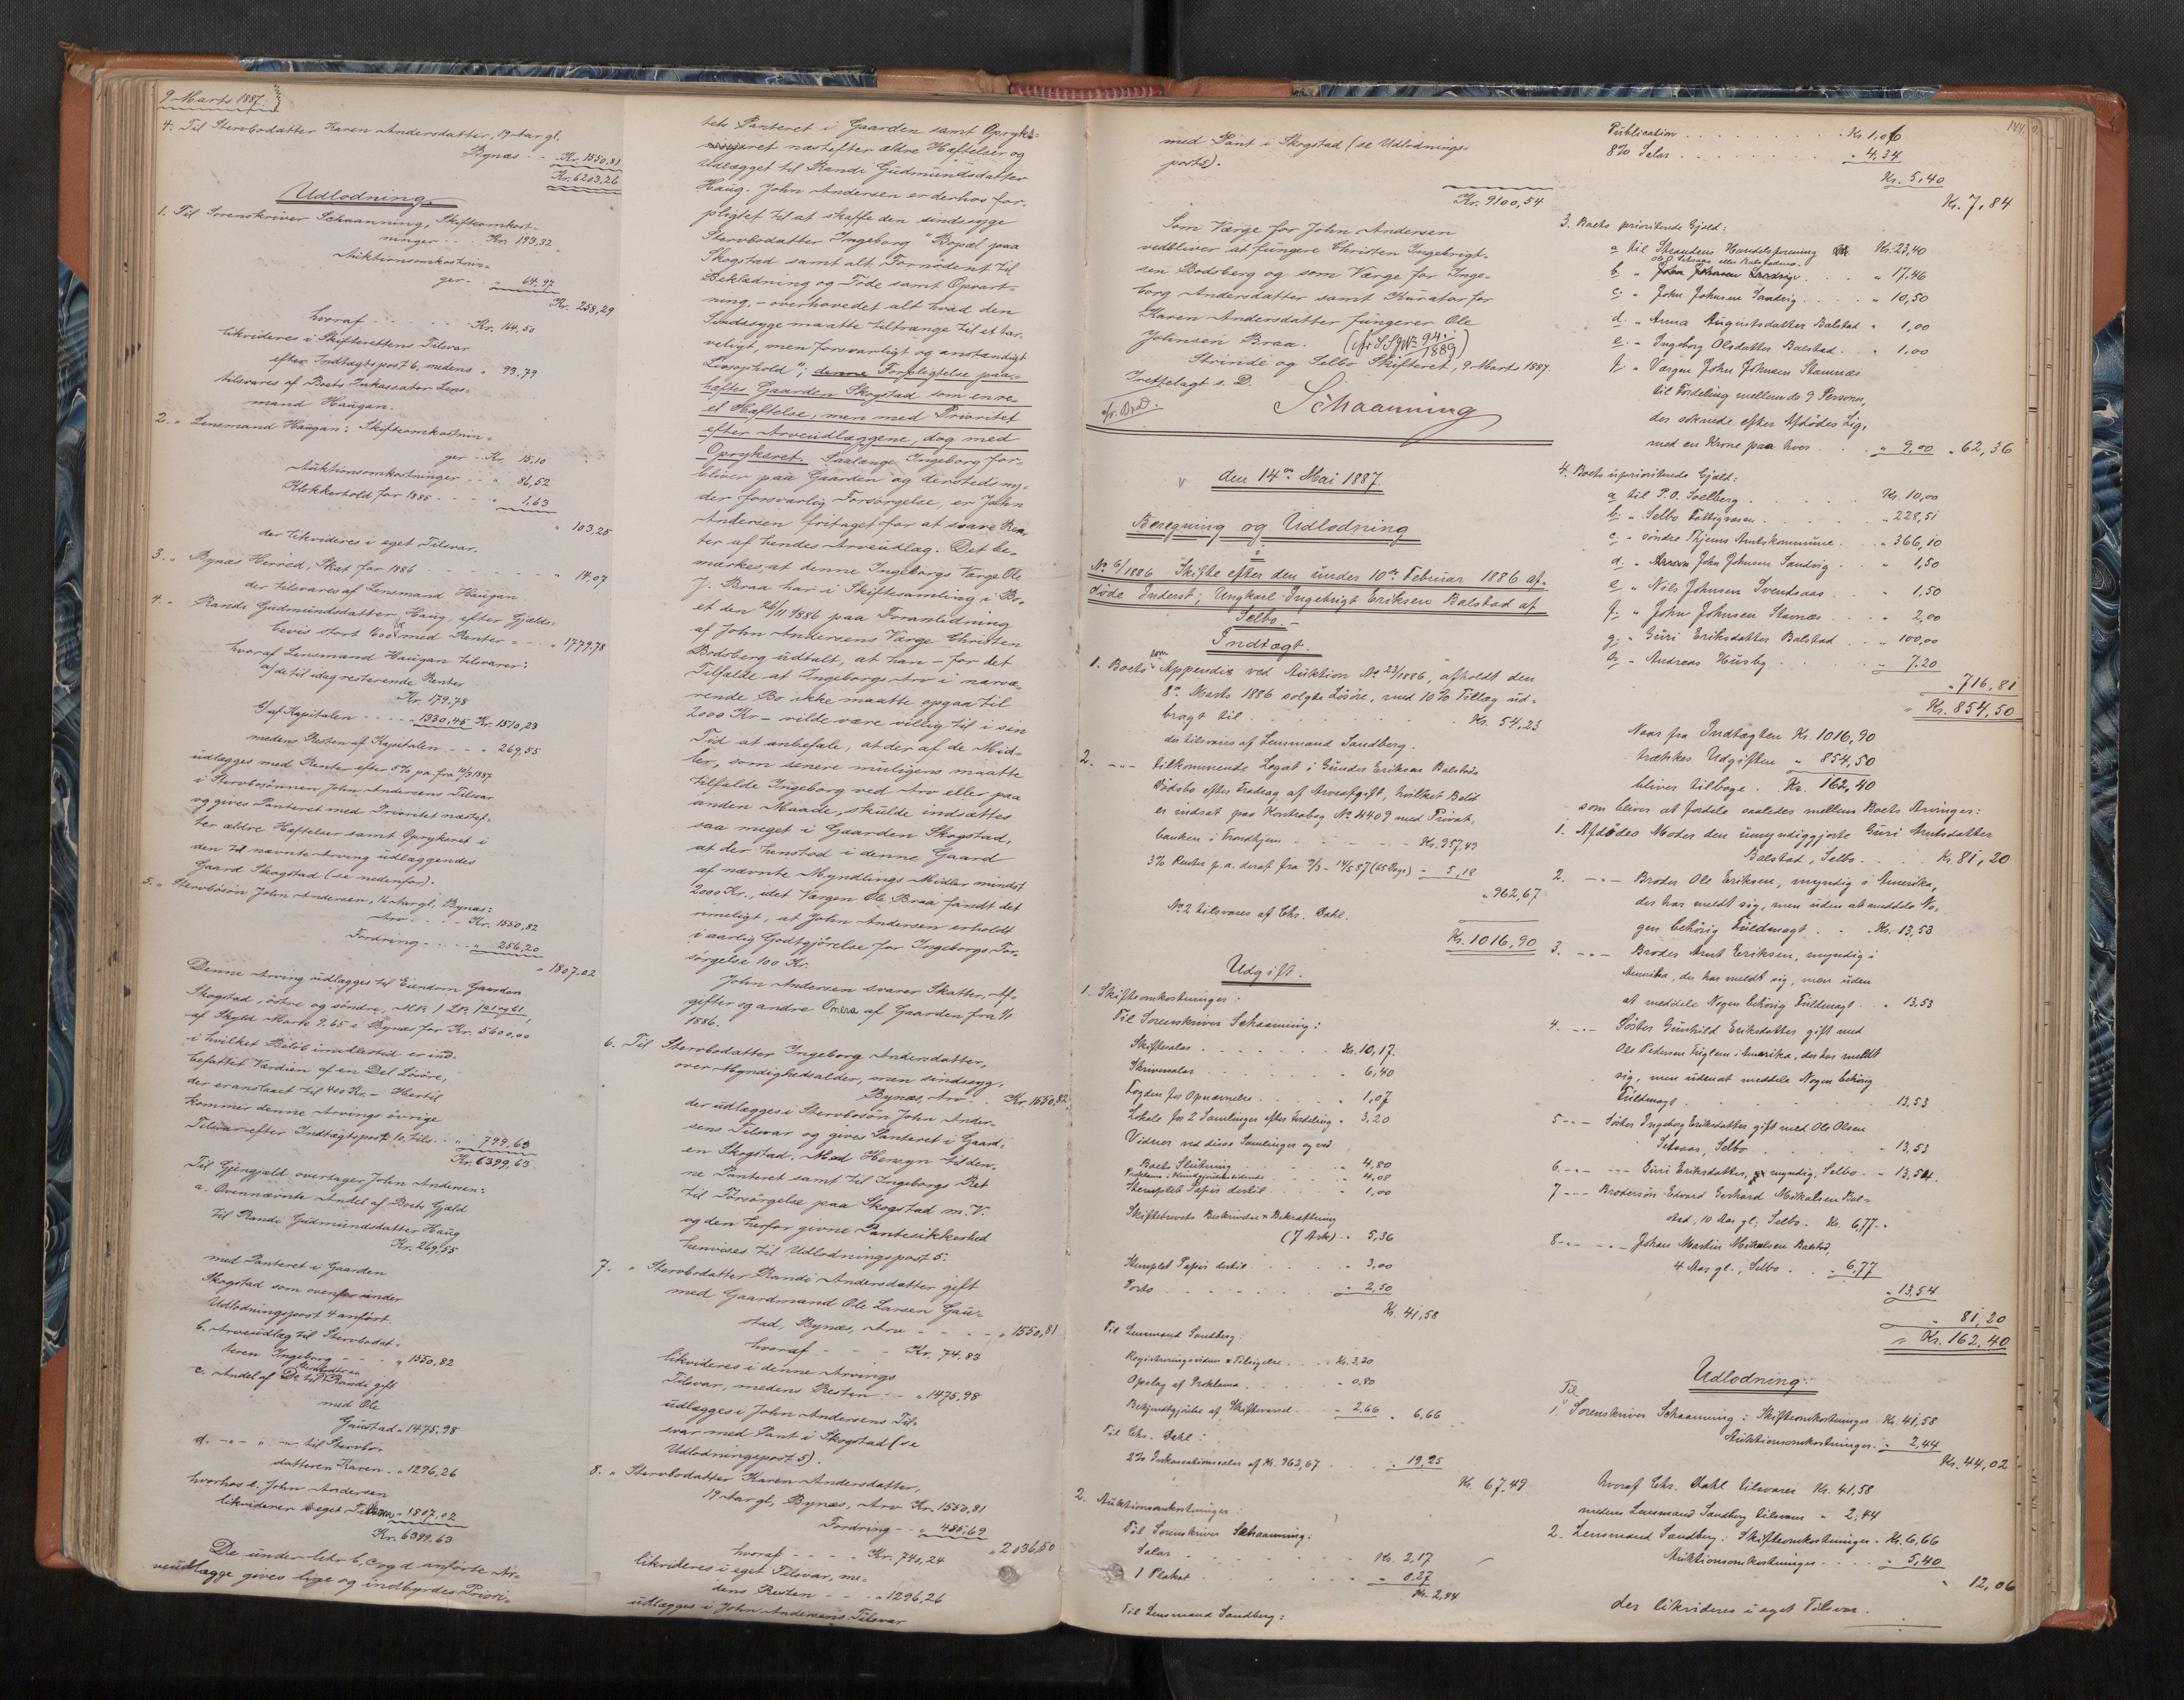 9 Marts 1887.
4. Til Stervbodatter Karen Andersdatter, 19 Aar gl.
Bynæs - - Kr. 1550,81
Kr. 6203,26
Udlodning.
1. Til Sorenskriver Schaanning, Skifteomkost-
ninger - - Kr. 193,32
Auktionsomkostnin-
ger - - " 64,97
Kr. 258,29
hvoraf - - - - Kr. 164,50
likvideres i Skifterettens Tilsvar
efter Indtægtspost 6, medens " 93,79
tilsvares af Boets Inkassator Lens-
mand Haugan.
2. " Lensmand Haugan: Skifteomkostnin-
ger - Kr. 15,10
Auktionsomkostninger - - " 86,52
Klokkertold for 1885 - - - " 1,63
" 103,25
der likvideres i eget Tilsvar.
3. " Bynæs Herred, Skat for 1886 - - - - " 14,07
der tilsvares af Lensmand Haugan.
4. " Randi Gudmundsdatter Haug, efter Gjelds-
bevis stort 1600 Kr med Renter - - " 1779,78
hvoraf Lensmand Haugan tilsvarer:
a/ de til idag resterende Renter
Kr. 179,78
b/ af Kapitalen - - - " 1330,45 Kr. 1510,23
medens Resten af Kapitalen - - " 269,55
udlægges med Renter efter 5% p.a. fra 10/3 1887
i Stervbosønnen John Andersens Tilsvar
og gives Panteret med Prioritet næstef-
ter ældre Hæftelser samt Oprykret i
den til nævnte Arving udlæggendes
Gaard Skogstad (se nedenfor).
5. " Stervbosøn John Andersen, 16 Aar gl., Bynæs:
Arv - - - Kr. 1550,82
Fordring - - - " 256,20
" 1807,02
Denne Arving udlægges til Eiendom Gaarden
Skogstad, østre og søndre,
af Skyld Mark 9.65 i Bynæs for Kr. 5600,00
i hvilket Beløb imidlertid er ind-
befattet Værdien af en Del Løsøre,
der er anslaaet til 400 Kr. - Hertil
kommer denne Arvings øvrige
Tilsvar efter Indtægtspost 10, tils. - " 799,63
Kr. 6399,63
Til Gjengjæld overtager John Andersen:
a. Ovennævnte Andel af Boets Gjæld
til Randi Gudmundsdatter Haug
Kr. 269,55
med Panteret i Gaarden
Skogstad som ovenfor under
Udlodningspost 4 anført.
b. Arveudlæg til Stervbodat-
teren Ingeborg - - - " 1550,82
c. Andel af Do til Stervbodatteren Randi gift
med Ole
Gaustad " 1475,98
d. - " - " - " til Stervbo-
datteren Karen - " 1296,26
hvorhos e, John Andersen
likviderer i eget Tilsvar " 1807,02
Kr. 6399,63
De under litr. b, c og d anførte Ar-
veudlægge gives lige og indbyrdes Priori-
tets Panteret i Gaarden samt Opryks-
ret næstefter ældre Hæftelser og
Udlægget til Randi Gudmundsdatter
Haug. John Andersen er derhos for-
pligtet til at skaffe den sindssyge
Stervbodatter Ingeborg "Bopæl paa
Skogstad samt alt Fornødent til
Beklædning og Føde samt Opvart-
ning, - overhovedet alt hvad den
Sindssyge maatte tiltrænge til et tar-
veligt, men forsvarligt og anstændigt
Livsophold"; denne Forpligtelse paa-
hæftes Gaarden Skogstad som en re-
el Hæftelse, men med Prioritet
efter Arveudlæggene, dog med
Oprykret. Saalænge Ingeborg for-
bliver paa Gaarden og dersteds ny-
der forsvarlig Forsørgelse, er John
Andersen fritaget for at svare Ren-
ter af hendes Arveudlæg. Det be-
mærkes, at denne Ingeborgs Værge Ole
J. Braa har i Skiftesamling i Bo-
et den 26/11 1886 paa Foranledning
af John Andersens Værge Christen
Bodsberg udtalt, at han - for det
Tilfælde at Ingeborgs Arv i nærvæ-
rende Bo ikke maatte opgaa til
2000 Kr - vilde være villig til i sin
Tid at anbefale, at der af de Mid-
ler, som senere muligens maatte
tilfalde Ingeborg ved Arv eller paa
anden Maade, skulde indsættes
saa meget i Gaarden Skogstad,
at der henstod i denne Gaard
af nævnte Myndlings Midler mindst
2000 Kr., idet Værgen Ole Braa fandt det
rimeligt, at John Andersen erholdt
i aarlig Godtgjørelse for Ingeborgs For-
sørgelse 100 Kr.
John Andersen svarer Skatter, Af-
gifter og andre Onera af Gaarden fra 1/1
1886.
6. Til Stervbodatter Ingeborg Andersdatter,
over Myndighedsalder, men sindssyg,
Bynæs, Arv - - Kr. 1550,82
der udlægges i Stervbosøn John Ander-
sens Tilsvar og gives Panteret i Gaard-
en Skogstad. Med Hensyn til den-
ne Panteret samt til Ingeborgs Ret
til Forsørgelse paa Skogstad m.V.
og den herfor givne Pantesikkerhed
henvises til Udlodningspost 5.
7. " Stervbodatter Randi Andersdatter gift
med Gaardmand Ole Larsen Gau-
stad, Bynæs, Arv - - - - " 1550,81
hvoraf - - - Kr. 74,83
likvideres i denne Arvings
Tilsvar, medens Resten - - " 1475,98
udlægges i John Andersens Til-
svar med Pant i Skogstad (se
Udlodningspost 5).
8. " Stervbodatter Karen Andersdatter,
19 Aar gl., Bynæs, Arv Kr. 1550,81
Fordring - - " 485,69
" 2036,50
hvoraf - - - - Kr. 740,24
likvideres i eget Tilsvar, me-
dens Resten - - - " 1296,26
udlægges i John Andersens Tilsvar
med Pant i Skogstad (se Udlodnings-
post 5).
Kr. 9100,54
Som Værge for John Andersen
vedbliver at fungere Christen Ingebrigt-
sen Bodsberg og som Værge for Inge-
borg Andersdatter samt Kurator for
Karen Andersdatter fungerer Ole
Johnsen Braa. (cfr S.J. No 94/1889)
Strinde og Selbo Skifteret, 9 Marts 1887.
Irettelagt s. D.
Schaanning
den 14de Mai 1887.
Beregning og Udlodning
i
No 6/1886 Skifte efter den under 10de Februar 1886 af-
døde Inderst, Ungkarl Ingebrigt Eriksen Balstad af
Selbo.
Indtægt.
1. Boets som Appendix ved Auktion No 23/1886, afholdt den
8de Marts 1886 solgte Løsøre, med 10% Tillæg ud-
bragt til - - - - Kr. 54,23
der tilsvares af Lensmand Sandberg.
2. - " - tilkommende Legat i Gunder Eriksen Balstads
Dødsbo efter Fradrag af Arveafgift, hvilket Beløb
er indsat paa Kontrabog No 4409 med Privat-
banken i Trondhjem - - - - Kr. 957,49
3% Renter p.a. deraf fra 9/3 - 14/5 87 (65 Dage) - 5,18
" 962,67
No 2 tilsvares af Chr. Dahl.
Kr. 1016,90
Udgift.
1. Skifteomkostninger:
Til Sorenskriver Schaanning:
Skiftesalær - - - - Kr. 10,17.
Skriversalær - - - - " 6,40
Fogden for Opnævnelse - - - " 1,07
Lokale for 2 Samlinger efter Fordeling " 3,20
Vidner ved disse Samlinger og ved
Boets Slutning - - - " 4,80
Proklama i Kundgjørelsestidende - - " 4,08
Stemplet Papir dertil - - - " 1,00
Skiftebrevets Beskrivelse & Bekræftning
(7 Ark) - - 5,36
Stemplet Papir dertil - - - " 3,00
Porto - - - - - " 2,50
Kr. 41,58
Til Lensmand Sandberg:
Registreringsvidner & Tilsigelse - - Kr. 3,20
Opslag af Proklama - - - " 0,80
Bekjendtgjørelse af Skiftevarsel - - " 2,66 " 6,66
Til Chr. Dahl:
2% Inkassationssalær af Kr. 962,67 - - " 19,25
Kr. 67,49
2. Auktionsomkostninger:
Til Sorenskriver Schaanning:
Salær - - - - Kr. 2,17
1 Plakat - - - - " 0,27
Kr. 2,44
Til Lensmand Sandberg:
Publication - - - - Kr. 1,06
8% Salær - - - - " 4,34
Kr. 5,40
Kr. 7,84
3. Boets prioriterede Gjæld:
a til Strandens Handelsforening Kr. 23,40
b " " 17,46
c " John Johnsen Sandvig - - - " 10,50
d. " Anna Augustsdatter Balstad " 1,00
e. " Ingeborg Olsdatter Balstad - " 1,00
f. " Værgen John Johnsen Stamnæs
til Fordeling mellem de 9 Personer,
der søknede efter Afdødes Lig,
med en Krone paa hver - - " 9,00 " 62,36
4. Boets uprioriterede Gjæld:
a til P.O. Solberg - - - - Kr. 10,00
b " Selbo Fattigvæsen - - - " 228,51
c " søndre Thjems Amtskommune - " 366,10
d. " John Johnsen Sandvig - - " 1,50
e " Nils Johnsen Svendsaas - - " 1,50
f " John Johnsen Stamnæs - - " 2,00
g. " Guri Eriksdatter Balstad - - " 100,00
h " Andreas Husby - - - " 7.20
" 716,81
Kr. 854,50
Naar fra Indtægten Kr. 1016,90
trækkes Udgiften " 854,50
bliver tilbage - Kr. 162,40
som bliver at fordele saaledes mellem Boets Arvinger:
1. Afdødes Moder den umyndiggjorte Guri Arntsdatter
Balstad, Selbo - - - Kr. 81,20
2. - " - Broder Ole Eriksen, myndig i Amerika,
der har meldt sig, men uden at meddele No-
gen behørig Fuldmagt - - Kr. 13,53
3. - " - Broder Arnt Eriksen, myndig i
Amerika, der har meldt sig, men uden
at meddele Nogen behørig Fuldmagt - " 13,53
4. - " - Søster Gunhild Eriksdatter gift med
Ole Pedersen Fuglem i Amerika, der har meldt
sig, men uden at meddele Nogen behørig
Fuldmagt - - - - " 13,53
5 - " - Søster Ingeborg Eriksdatter gift med Ole Olsen
Setsaas, Selbo - - - " 13,53
6. - " - - " - Guri Eriksdatter, myndig, Selbo - " 13,54.
7 - " - Brodersøn Edvard Gerhard Mikalsen Bal-
stad, 10 Aar gl., Selbo - Kr. 6,77
8 - " - - " - Johan Martin Mikalsen Balstad,
4 Aar gl., Selbo - - " 6,77
" 13,54
" 81,20
Kr. 162,40
Udlodning:
Til
1. Sorenskriver Schaanning: Skifteomkostninger Kr. 41,58
Auktionsomkostninger - " 2,44
Kr. 44,02
hvoraf Chr. Dahl tilsvarer Kr. 41,58
medens Lensmand Sandberg tilsvarer " 2,44
2. Lensmand Sandberg: Skifteomkostninger - Kr. 6,66
Auktionsomkostninger - - " 5,40
" 12,06
der likvideres i eget Tilsvar.